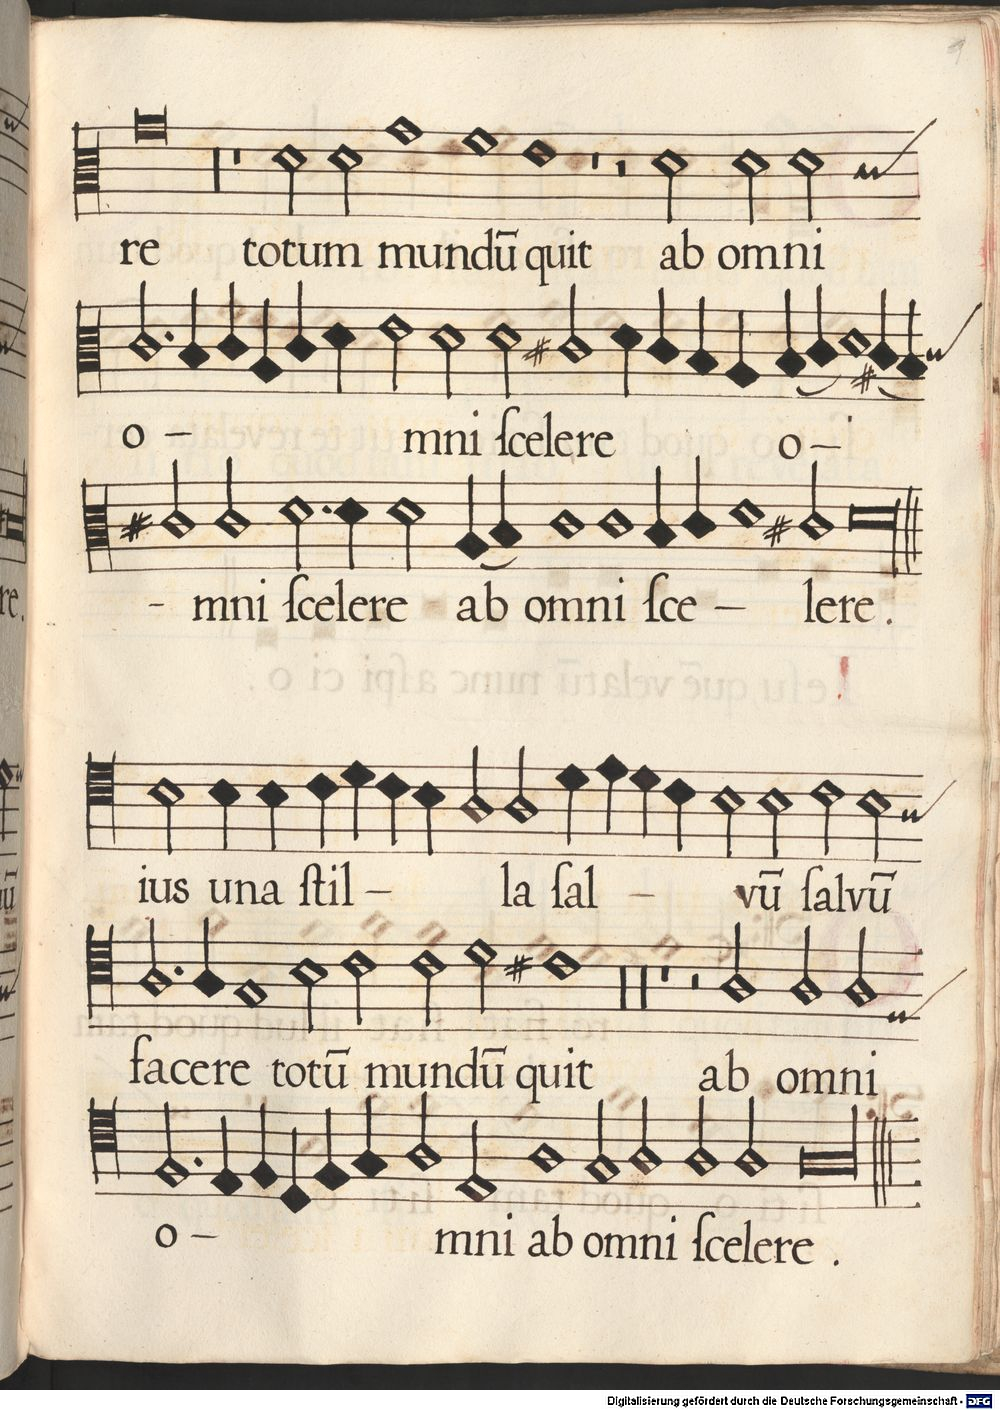 9
re totum mundū quit ab omni
o – mni ſcelere o –
- mni ſcelere ab omni ſce – lere .
ius una ſtil – la ſal – vū ſalvū
facere totū mundū quit ab omni
o – mni ab omni ſcelere .
re.
Digitalisierung gefördert durch die Deutsche Forschungsgemeinschaft - DFG